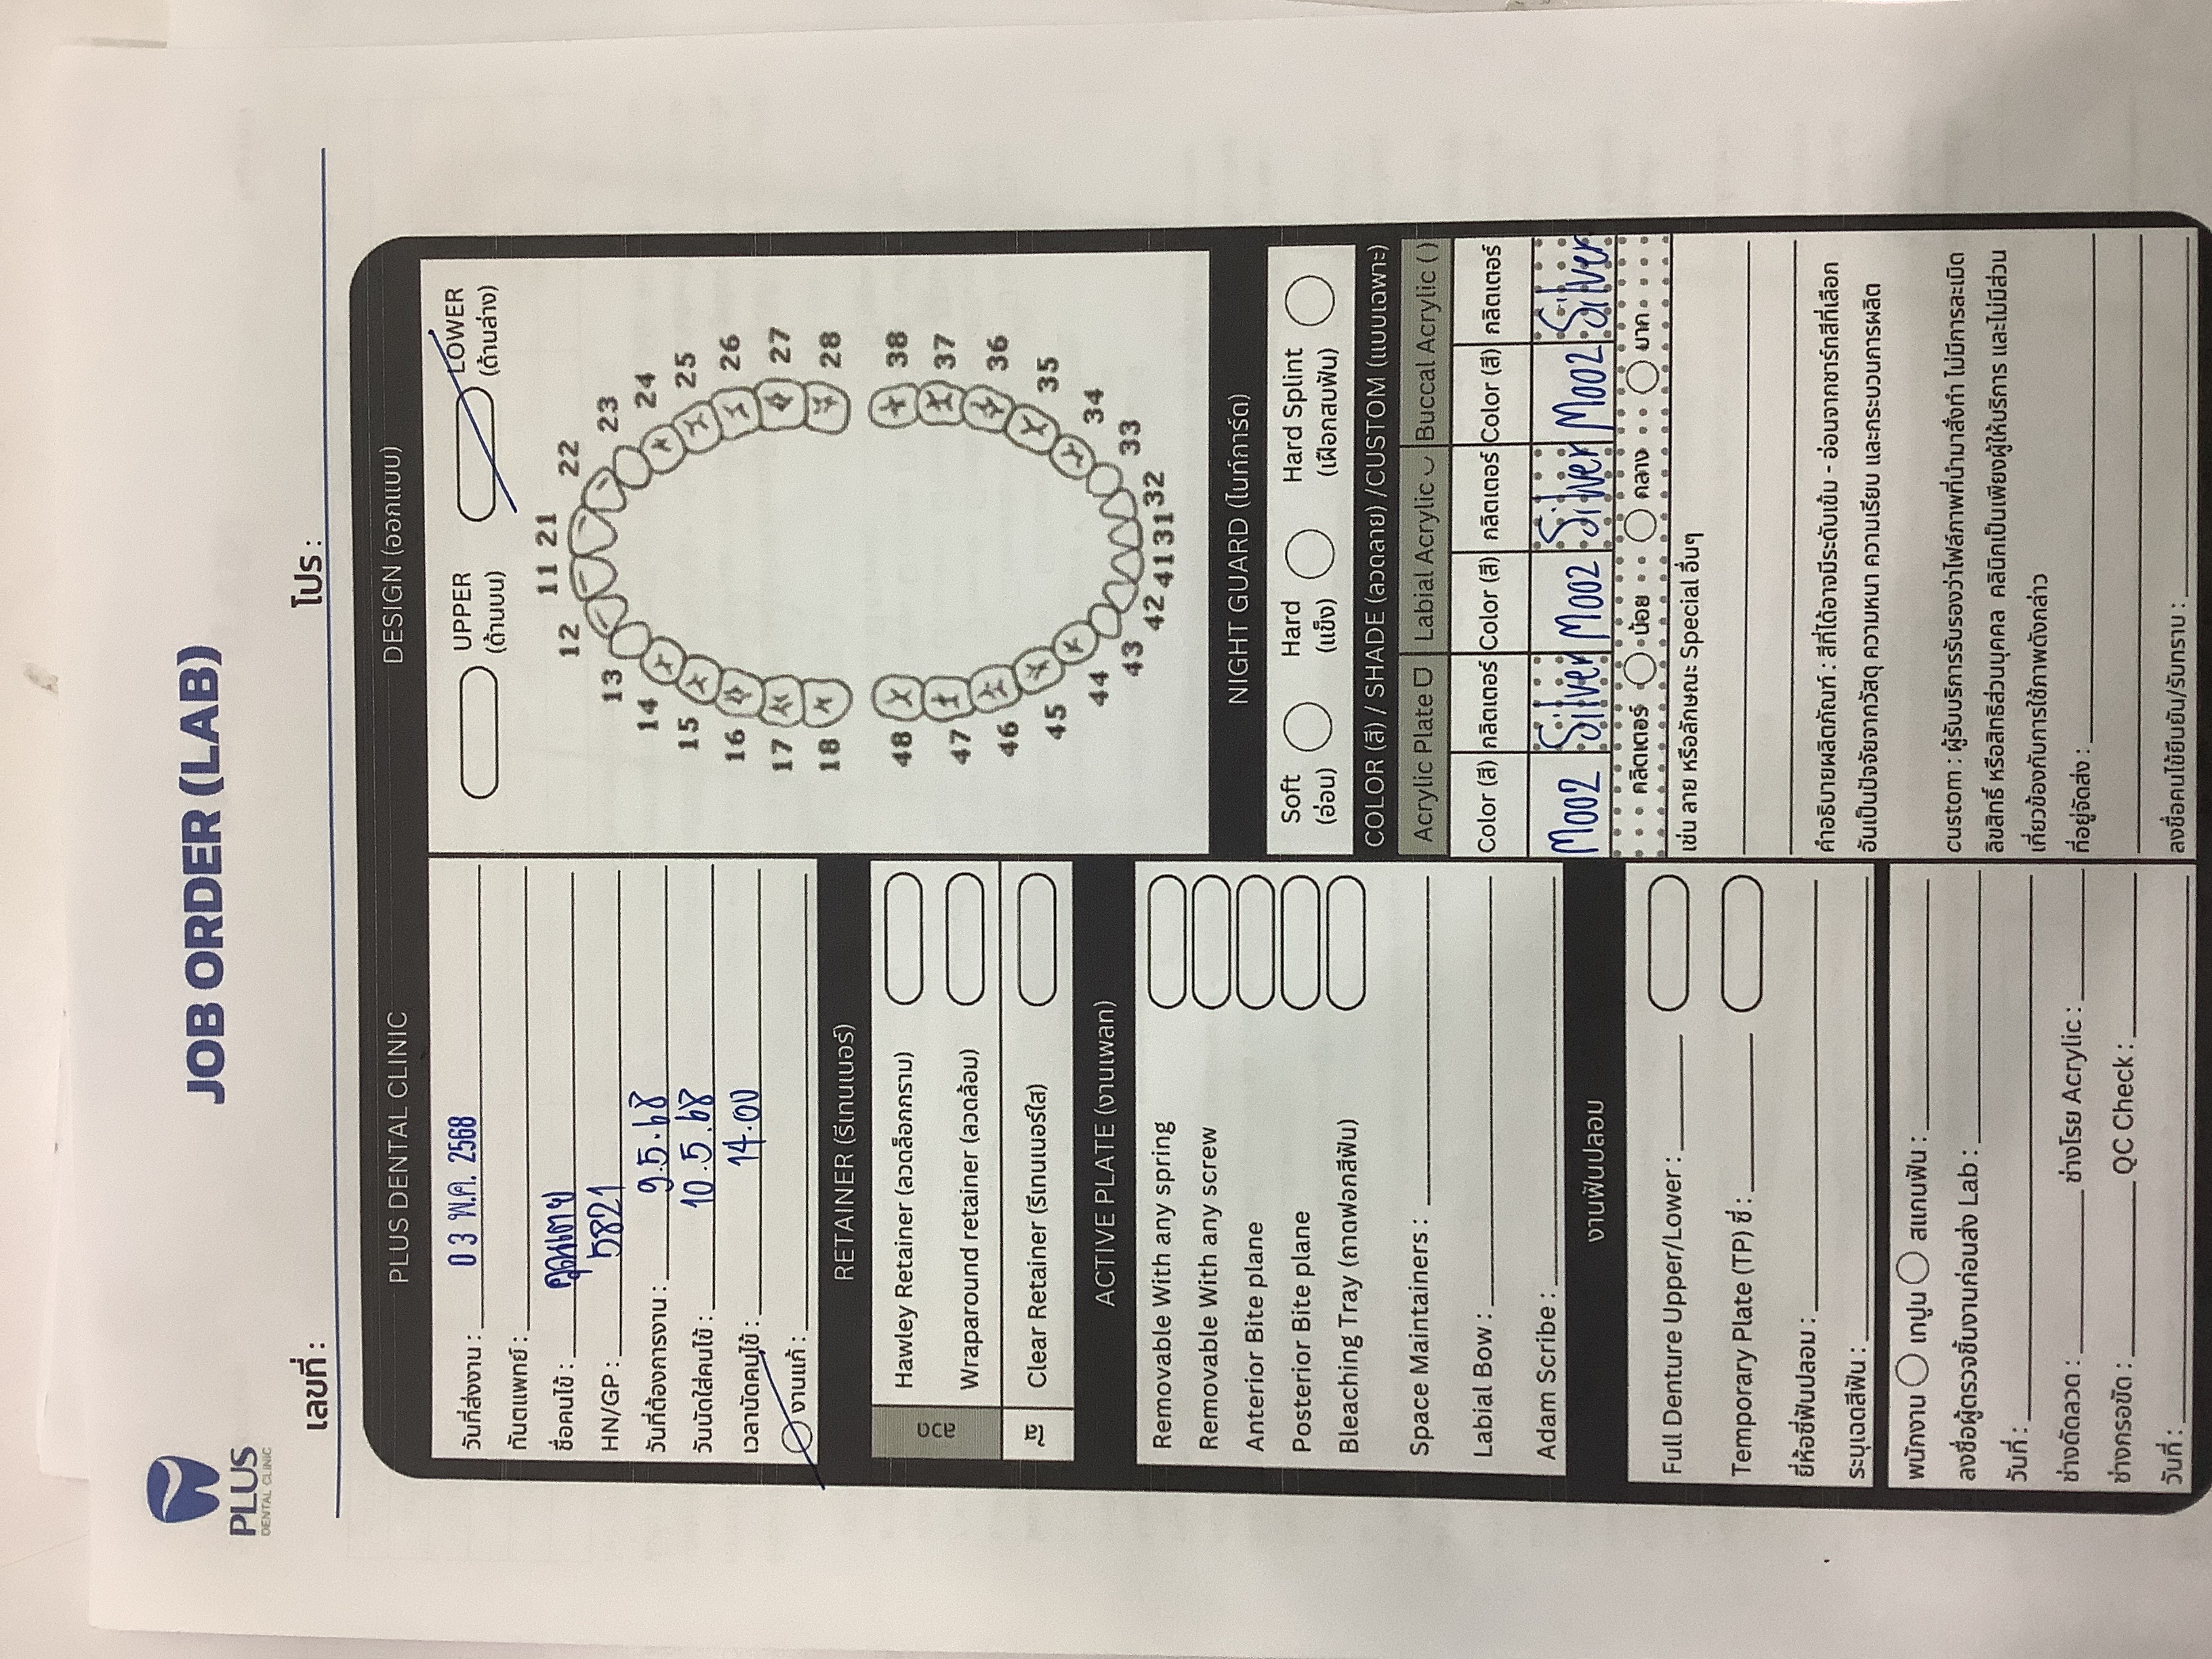 PLUS
DENTAL CLINIC
JOB ORDER (LAB)
เลขที่ :
โปร :
PLUS DENTAL CLINIC
วันที่ส่งงาน : 03 พ.ค. 2568
ทันตแพทย์ :
ชื่อคนไข้ : คุณเตย
HN/GP : 5821
วันที่ต้องการงาน : 9.5.68
วันนัดใส่คนไข้ : 10.5.68
เวลานัดคนไข้ : 14.00
งานแก้ :
RETAINER (รีเทนเนอร์)
ลวด
Hawley Retainer (ลวดล็อกกราม)
Wraparound retainer (ลวดล้อม)
ใส
Clear Retainer (รีเทนเนอร์ใส)
ACTIVE PLATE (งานเพลท)
Removable With any spring
Removable With any screw
Anterior Bite plane
Posterior Bite plane
Bleaching Tray (ถาดฟอกสีฟัน)
Space Maintainers :
Labial Bow :
Adam Scribe :
งานฟันปลอม
Full Denture Upper/Lower :
Temporary Plate (TP) ซี่ :
ยี่ห้อซี่ฟันปลอม :
ระบุเฉดสีฟัน :
พนักงาน เทปูน สแกนฟัน :
ลงชื่อผู้ตรวจชิ้นงานก่อนส่ง Lab :
วันที่ :
ช่างดัดลวด : ช่างโรย Acrylic :
ช่างกรอขัด : QC Check :
วันที่ :
DESIGN (ออกแบบ)
UPPER LOWER
(ด้านบน) (ด้านล่าง)
11 21
12 22
13 23
14 24
15 25
16 26
17 27
18 28
48 38
47 37
46 36
45 35
44 34
43 33
42 41 31 32
NIGHT GUARD (ไนท์การ์ด)
Soft Hard Hard Splint
(อ่อน) (แข็ง) (เฝือกสบฟัน)
COLOR (สี) / SHADE (ลวดลาย) /CUSTOM (แบบเฉพาะ)
Acrylic Plate Labial Acrylic Buccal Acrylic ( )
Color (สี) กลิตเตอร์ Color (สี) กลิตเตอร์ Color (สี) กลิตเตอร์
M002 Silver M002 Silver M002 Silver
กลิตเตอร์ น้อย กลาง มาก
เช่น ลาย หรือลักษณะ Special อื่นๆ
คำอธิบายผลิตภัณฑ์ : สีที่ได้อาจมีระดับเข้ม - อ่อนจากชาร์ทสีที่เลือก
อันเป็นปัจจัยจากวัสดุ ความหนา ความเรียบ และกระบวนการผลิต
custom : ผู้รับบริการรับรองว่าไฟล์ภาพที่นำมาสั่งทำ ไม่มีการละเมิด
ลิขสิทธิ์ หรือสิทธิส่วนบุคคล คลินิกเป็นเพียงผู้ให้บริการ และไม่มีส่วน
เกี่ยวข้องกับการใช้ภาพดังกล่าว
ที่อยู่จัดส่ง :
ลงชื่อคนไข้ยืนยัน/รับทราบ :